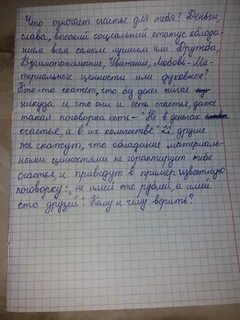 Что означает счастье для тебя? Деньги,
слава, высокий социальный статус облада-
нием всем самым лучшим или Дружба,
Взаимопонимание, Уважение, Любовь. Ма-
териальные ценности или духовное?
Кто-то скажет, что без денег сейчас
никуда и что они и есть счастье, даже
такая поговорка есть - "Не в деньгах
счастье, а в их количестве", другие
же скажут, что обладание материаль-
ными ценностями не гарантирует тебе
счастья, и приведут в пример известную
поговорку: "не имей сто рублей, а имей
сто друзей". Кому и чему верить?